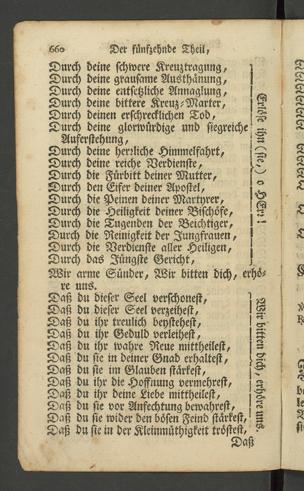 660 Der fünfzehnde Theil,
Durch deine schwere Kreuztragung,
Durch deine grausame Austhänung,
Durch deine entsetzliche Annaglung,
Durch deine bittere Kreuz-Marter,
Durch deinen erschrecklichen Tod,
Durch deine glorwürdige und siegreiche
Auferstehung,
Durch deine herrliche Himmelfahrt,
Durch deine reiche Verdienste,
Durch die Fürbitt deiner Mutter,
Durch den Eifer deiner Apostel,
Durch die Peinen deiner Martyrer,
Durch die Heiligkeit deiner Bischöfe,
Durch die Tugenden der Beichtiger,
Durch die Reinigkeit der Jungfrauen,
Durch die Verdienste aller Heiligen,
Durch das Jüngste Gericht,
Erlöse ihn (sie,) o HErr!
Wir arme Sünder, Wir bitten dich, erhö-
re uns.
Daß du dieser Seel verschonest,
Daß du dieser Seel vergeihest,
Daß du ihr treulich beystehest,
Daß du ihr Geduld verleihest,
Daß du ihr wahre Reue mittheilest,
Daß du sie in deiner Gnad erhaltest,
Daß du sie im Glauben stärkest,
Daß du ihr die Hoffnung vermehrest,
Daß du ihr deine Liebe mittheilest,
Daß du sie vor Anfechtung bewahrest,
Daß du sie wider den bösen Feind stärkest,
Daß du sie in der Kleinmüthigkeit tröstest,
Wir bitten dich, erhöre uns.
Daß